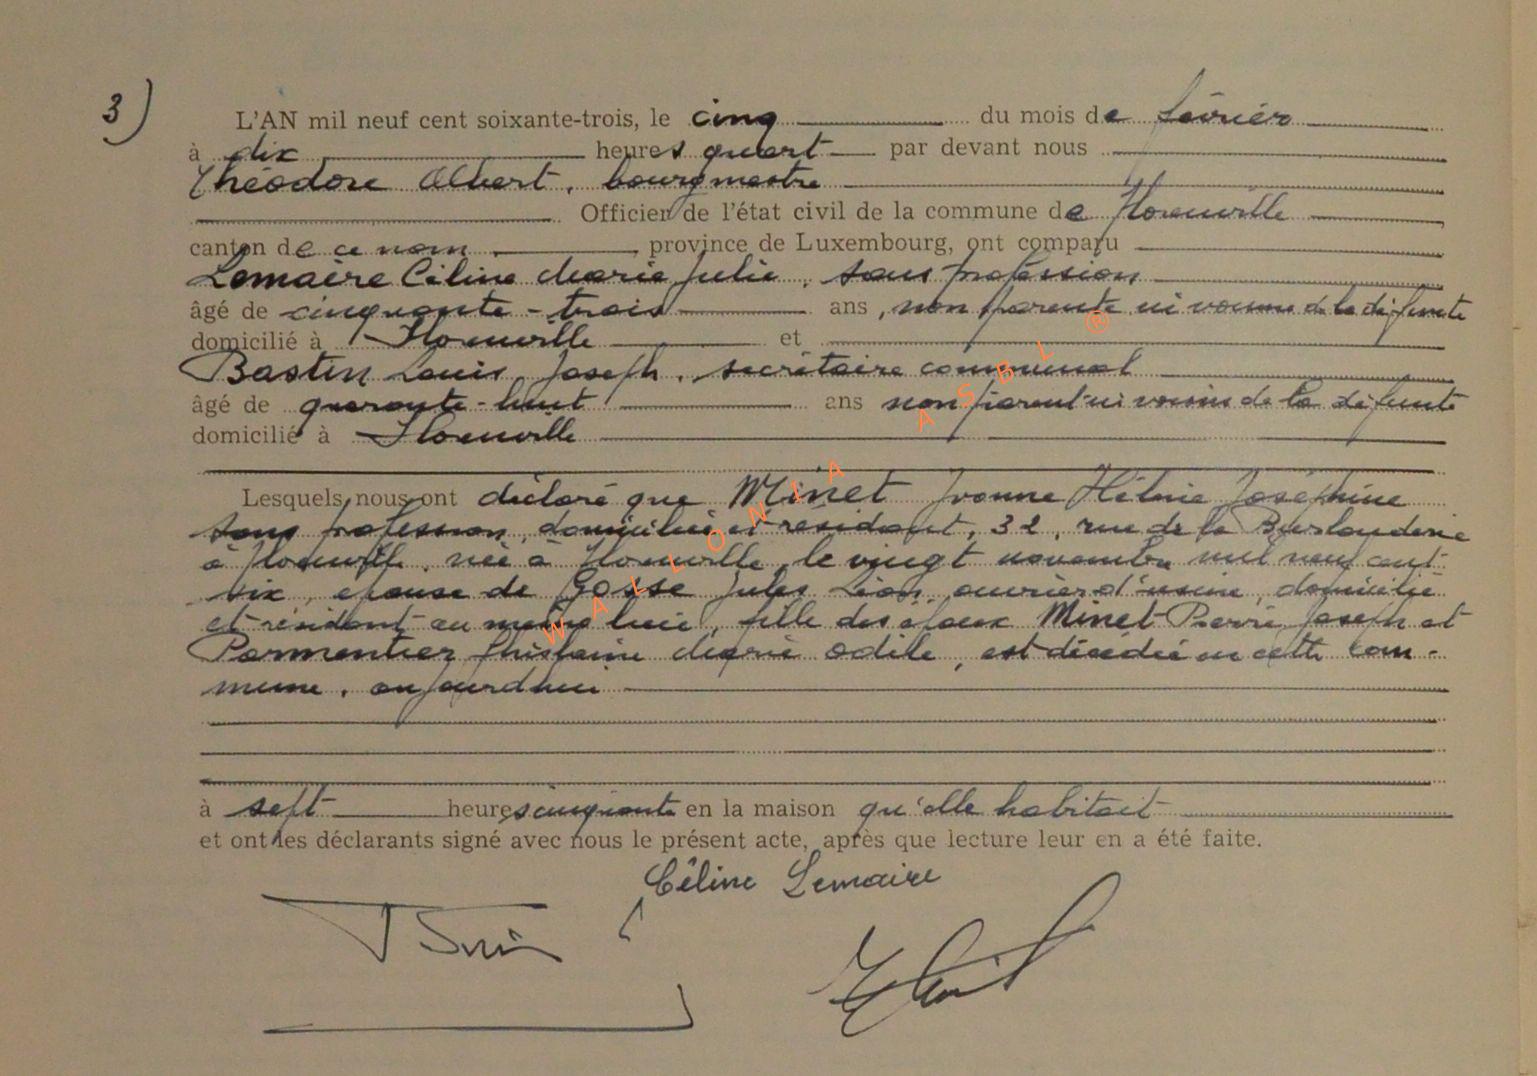 3)
L'AN mil neuf cent soixante-trois, le cinq du mois de février
à dix heures quart par devant nous
Théodore Albert, bourgmestre
Officier de l'état civil de la commune de Florenville
canton de ce nom, province de Luxembourg, ont comparu
Lemaire Céline Marie Julie, sans profession
âgé de cinquante-trois ans, non parente ni voisine de la défunte
domicilié à Florenville et
Bastin Louis Joseph, secrétaire communal
âgé de quarante-huit ans non parent ni voisin de la défunte
domicilié à Florenville
Lesquels nous ont déclaré que Minet Yvonne Hélène Joséphine
sans profession, domiciliée et résidant, 32, rue de la
à Florenville, née à Florenville, le vingt novembre mil neuf cent
six, épouse de Gosse Jules Léon, ouvrier d'usine, domicilié
et résidant au même lieu, fille des époux Minet Pierre Joseph et
Parmentier Ghislaine Marie Odile, est décédée en cette com-
mune, aujourd'hui
à sept heures cinquante en la maison qu'elle habitait
et ont les déclarants signé avec nous le présent acte, après que lecture leur en a été faite.
Céline Lemaire
WALLONIA ASBL ®